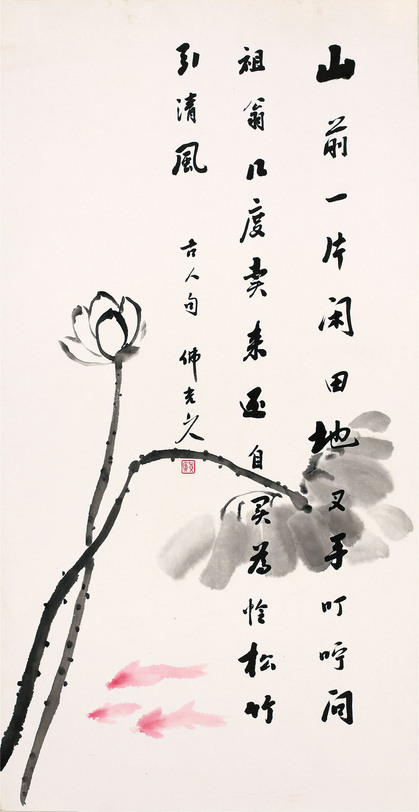 山前一片闲田地叉手叮咛问
祖翁几度卖来还自买為怜松竹
引清風
古人句 佛光山人